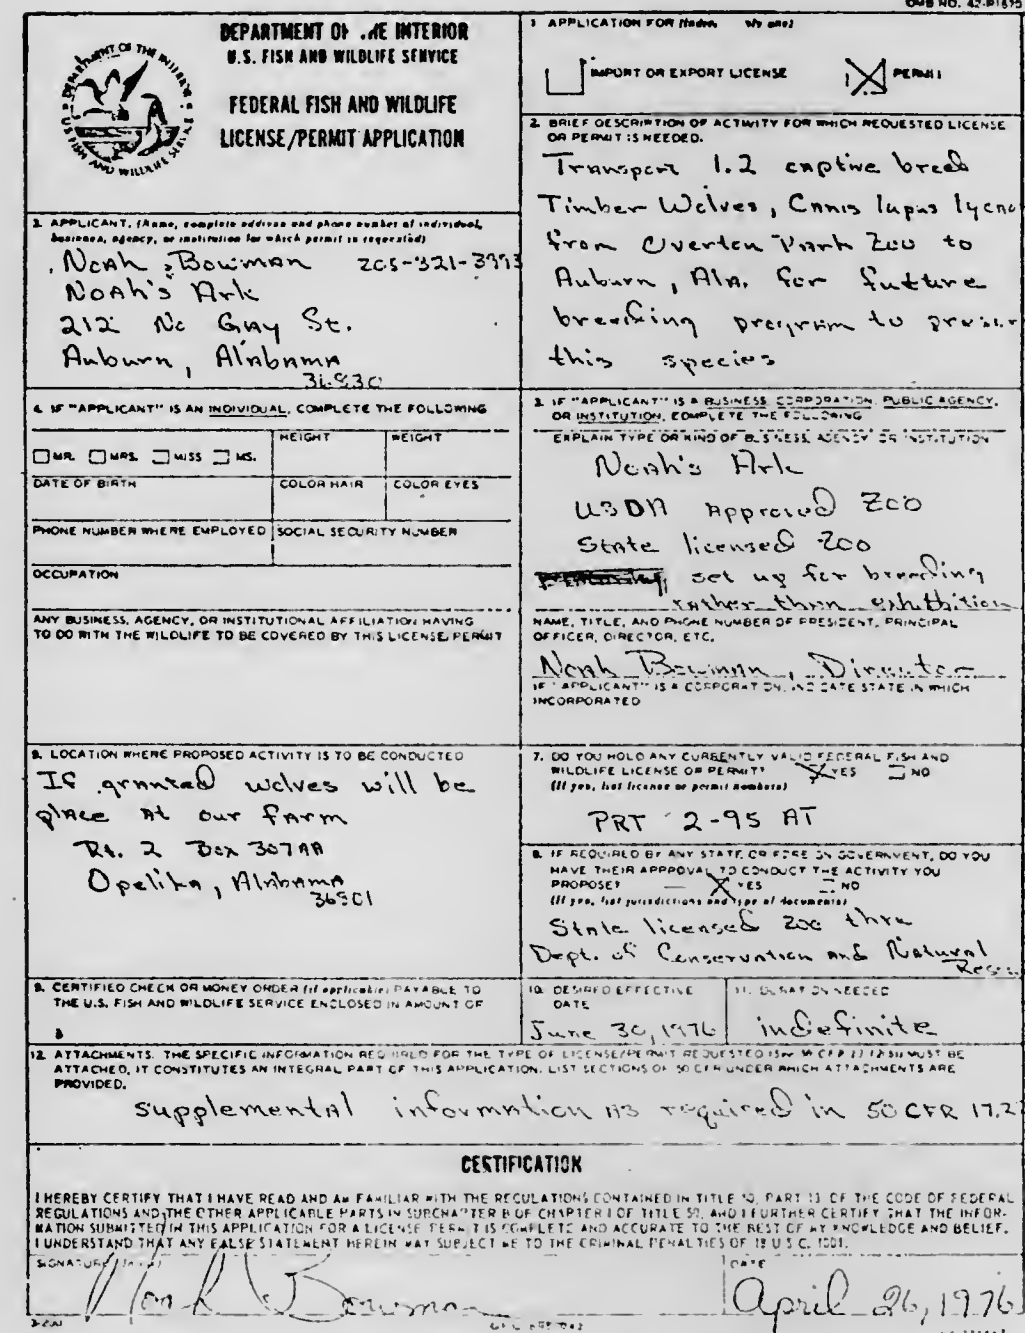 OMB NO. 42-R1670
DEPARTMENT OF THE INTERIOR
U.S. FISH AND WILDLIFE SERVICE
FEDERAL FISH AND WILDLIFE
LICENSE/PERMIT APPLICATION
1. APPLICATION FOR (Indicate only one)
IMPORT OR EXPORT LICENSE
PERMIT
2. BRIEF DESCRIPTION OF ACTIVITY FOR WHICH REQUESTED LICENSE
OR PERMIT IS NEEDED.
Transport 1.2 captive breed
Timber Wolves, Canis lupus lycao
from Overton Park Zoo to
Auburn, Ala. for future
breeding program to
this species
3. APPLICANT. (Name, complete address and phone number of individual,
business, agency, or institution for which permit is requested)
Noah Bowman 205-321-3993
Noah's Ark
212 No Gay St.
Auburn, Alabama
36830
4. IF "APPLICANT" IS AN INDIVIDUAL, COMPLETE THE FOLLOWING
MR. MRS. MISS MS.
HEIGHT
WEIGHT
DATE OF BIRTH
COLOR HAIR
COLOR EYES
PHONE NUMBER WHERE EMPLOYED
SOCIAL SECURITY NUMBER
OCCUPATION
ANY BUSINESS, AGENCY, OR INSTITUTIONAL AFFILIATION HAVING
TO DO WITH THE WILDLIFE TO BE COVERED BY THIS LICENSE/PERMIT
5. IF "APPLICANT" IS A BUSINESS, CORPORATION, PUBLIC AGENCY,
OR INSTITUTION, COMPLETE THE FOLLOWING
EXPLAIN TYPE OR KIND OF BUSINESS, AGENCY OR INSTITUTION
Noah's Ark
USDA Approved Zoo
State licensed Zoo
set up for breeding
rather than exhitbition
NAME, TITLE, AND PHONE NUMBER OF PRESIDENT, PRINCIPAL
OFFICER, DIRECTOR, ETC.
Noah Bowman, Director
IF "APPLICANT" IS A CORPORATION, INDICATE STATE IN WHICH
INCORPORATED
6. LOCATION WHERE PROPOSED ACTIVITY IS TO BE CONDUCTED
If granted wolves will be
place at our farm
Rt. 2 Box 307AA
Opelika, Alabama
36801
7. DO YOU HOLD ANY CURRENTLY VALID FEDERAL FISH AND
WILDLIFE LICENSE OR PERMIT? YES NO
(If yes, list license or permit numbers)
PRT 2-95 AT
8. IF REQUIRED BY ANY STATE OR FOREIGN GOVERNMENT, DO YOU
HAVE THEIR APPROVAL TO CONDUCT THE ACTIVITY YOU
PROPOSE? YES NO
(If yes, list jurisdictions and type of documents)
State licensed Zoo thru
Dept. of Conservation and Natural
9. CERTIFIED CHECK OR MONEY ORDER (if applicable) PAYABLE TO
THE U.S. FISH AND WILDLIFE SERVICE ENCLOSED IN AMOUNT OF
$
10. DESIRED EFFECTIVE
DATE
June 30, 1976
11. DURATION NEEDED
indefinite
12. ATTACHMENTS. THE SPECIFIC INFORMATION REQUIRED FOR THE TYPE OF LICENSE/PERMIT REQUESTED (See 50 CFR 13.12(b)) MUST BE
ATTACHED, IT CONSTITUTES AN INTEGRAL PART OF THIS APPLICATION. LIST SECTIONS OF 50 CFR UNDER WHICH ATTACHMENTS ARE
PROVIDED.
supplemental information as required in 50 CFR 17.2
CERTIFICATION
I HEREBY CERTIFY THAT I HAVE READ AND AM FAMILIAR WITH THE REGULATIONS CONTAINED IN TITLE 50, PART 13, OF THE CODE OF FEDERAL
REGULATIONS AND THE OTHER APPLICABLE PARTS IN SUBCHAPTER B OF CHAPTER I OF TITLE 50, AND I FURTHER CERTIFY THAT THE INFOR-
MATION SUBMITTED IN THIS APPLICATION FOR A LICENSE/PERMIT IS COMPLETE AND ACCURATE TO THE BEST OF MY KNOWLEDGE AND BELIEF.
I UNDERSTAND THAT ANY FALSE STATEMENT HEREIN MAY SUBJECT ME TO THE CRIMINAL PENALTIES OF 18 U.S.C. 1001.
SIGNATURE (In ink)
Noah Bowman
DATE
April 26, 1976
3-200